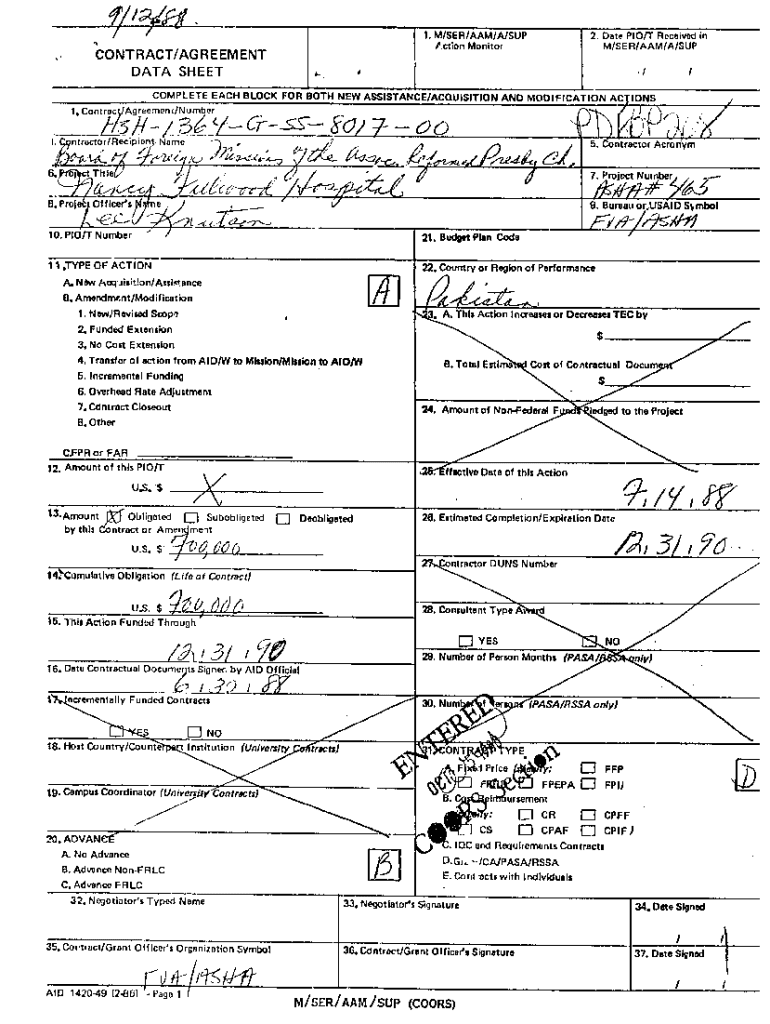 9/12/88
CONTRACT/AGREEMENT
DATA SHEET
1. M/SER/AAM/A/SUP
Action Monitor
2. Date PIO/T Received in
M/SER/AAM/A/SUP
/ /
COMPLETE EACH BLOCK FOR BOTH NEW ASSISTANCE/ACQUISITION AND MODIFICATION ACTIONS
1. Contract/Agreement/Number
HSH-1364-G-SS-8017-00
I. Contractor/Recipient Name
Board of Foreign Missions of the Assoc. Reformed Presby Ch.
5. Contractor Acronym
6. Project Title
Nancy Fulwood Hospital
7. Project Number
ASHA# 465
8. Project Officer's Name
Lee Knutson
9. Bureau or USAID Symbol
FVA/ASHA
10. PIO/T Number
21. Budget Plan Code
11. TYPE OF ACTION
A. New Acquisition/Assistance
B. Amendment/Modification
1. New/Revised Scope
2. Funded Extension
3. No Cost Extension
4. Transfer of action from AID/W to Mission/Mission to AID/W
5. Incremental Funding
6. Overhead Rate Adjustment
7. Contract Closeout
8. Other
A
CFPR or FAR
22. Country or Region of Performance
Pakistan
23. A. This Action Increases or Decreases TEC by
$
B. Total Estimated Cost of Contractual Document
$
24. Amount of Non-Federal Funds Pledged to the Project
12. Amount of this PIO/T
U.S. $ X
25. Effective Date of this Action
7, 14, 88
13. Amount X Obligated Subobligated Deobligated
by this Contract or Amendment
U.S. $ 700,000
26. Estimated Completion/Expiration Date
12, 31, 90
14. Cumulative Obligation (Life of Contract)
U.S. $ 700,000
27. Contractor DUNS Number
28. Consultant Type Award
YES NO
15. This Action Funded Through
12, 31, 90
16. Date Contractual Documents Signed by AID Official
6, 30, 88
29. Number of Person Months (PASA/RSSA only)
17. Incrementally Funded Contracts
YES NO
30. Number of Persons (PASA/RSSA only)
18. Host Country/Counterpart Institution (University Contracts)
19. Campus Coordinator (University Contracts)
ENTERED
COORS Section
31. CONTRACT TYPE
A. Fixed Price FFP
FPEPA FPI
B. Cost Reimbursement
CR CPFF
CS CPAF CPIF)
C. IQC and Requirements Contracts
CA/PASA/RSSA
E. Contracts with Individuals
D
20. ADVANCE
A. No Advance
B. Advance Non-FRLC
C. Advance FRLC
B
32. Negotiator's Typed Name
33. Negotiator's Signature
34. Date Signed
/ /
35. Contract/Grant Officer's Organization Symbol
FVA/ASHA
36. Contract/Grant Officer's Signature
37. Date Signed
/ /
AID 1420-49 (2-86) - Page 1
M/SER/AAM/SUP (COORS)